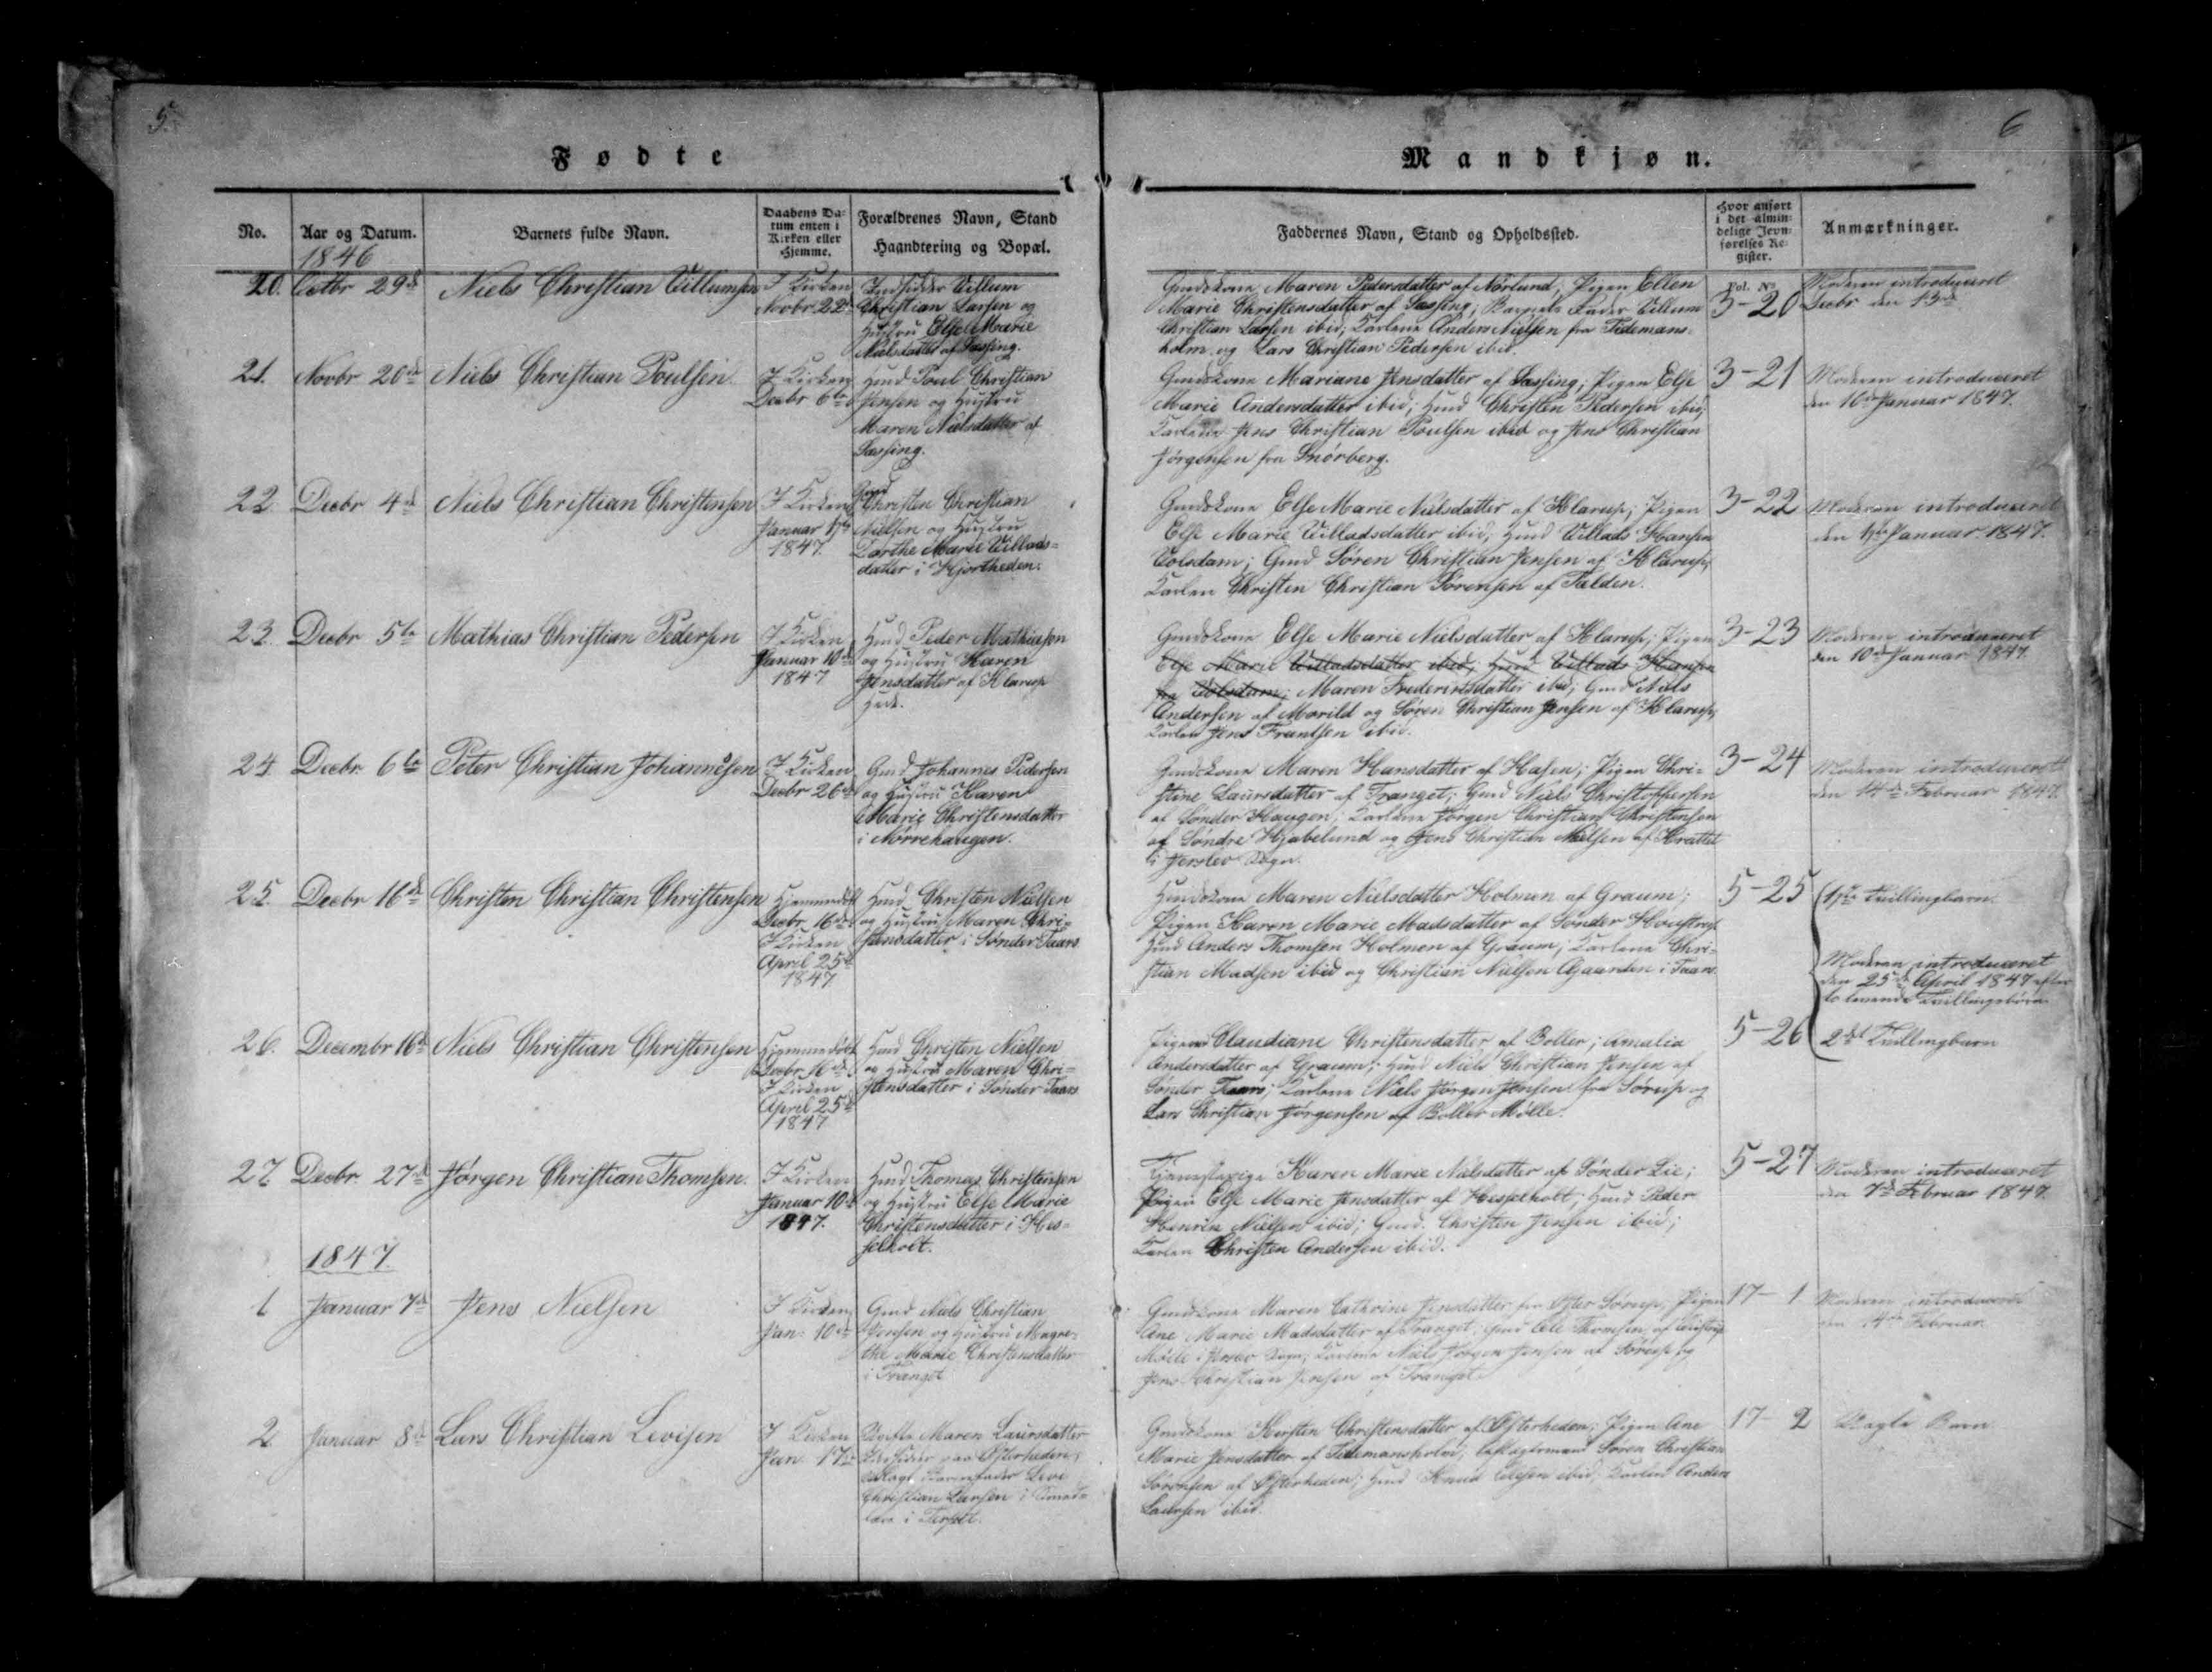 5.
6
Fødte
Mandkjøn.
No.
Aar og Datum.
Barnets fulde Navn.
Daabens Da-
tum enten i
Kirken eller
Hjemme.
Forældrenes Navn, Stand
Haandtering og Bopæl.
Faddernes Navn, Stand og Opholdssted.
Hvor anført
i det almin-
delige Jevn-
førelses Re-
gister.
Anmærkninger.
1846
Fol. No
20. Octbr 29de Niels Christian Villumsen
I Kirken
Novbr 22de
Indsidder Villum
Christian Larsen og
Hustru Else Marie
Nielsdatter af Sæssing.
Gmdskone Maren Pedersdatter af Nørlund; Pigen Ellen
Marie Christensdatter af Sæssing; Barnets Fader Villum
Christian Larsen ibid; Karlene Anders Nielsen fra Tidemans-
holm og Lars Christian Pedersen ibid.
3-20
Moderen introduceret
Decbr den 13de
21. Novbr 20de Niels Christian Poulsen
I Kirken
Decbr 6te
Huusmd Poul Christian
Jensen og Hustru
Maren Nielsdatter af
Sæssing.
Gmdskone Mariane Jensdatter af Sæssing; Pigen Else
Marie Andersdatter ibid; Huusmd Christen Pedersen ibid;
Karlene Jens Christian Poulsen ibid og Jens Christian
Jørgensen fra Snørberg.
3-21
Moderen introduceret
den 10de Januar 1847.
22. Decbr 4de Niels Christian Christensen
I Kirken
Januar 1ste
1847.
Gmd
Christen Christian
Nielsen og Hustru
Dorthe Marie Villads-
datter i Hjortheden.
Gmdskone Else Marie Nielsdatter af Klarup; Pigen
Else Marie Villadsdatter ibid; Huusmd Villads Hansen
Volsdam; Gmd Søren Christian Jensen af Klarup;
Karlen Christen Christian Sørensen af Talden.
3-22
Moderen introduceret
den 1ste Januar 1847.
23. Decbr 5te Mathias Christian Pedersen
I Kirken
Januar 10de
1847
Huusmd Peder Mathiesen
og Hustru Karen
Jensdatter af Klarup
Hede.
Gmdskone Else Marie Nielsdatter af Klarup; Pigen
Else Marie Villadsdatter ibid; Huusmd Villads Hansen
fra Volsdam; Maren Frederiksdatter ibid; Gmd Niels
Andersen af Morild og Søren Christian Jensen af Klarup;
Karlen Jens Frantsen ibid.
3-23
Moderen introduceret
den 10de Januar 1847.
24. Decbr. 6te Peter Christian Johannesen
I Kirken
Decbr 26de
Gmd Johannes Pedersen
og Hustru Karen
Marie Christensdatter
i Nørrehaugen.
Gmdskone Maren Hansdatter af Hasen; Pigen Chri-
stine Laursdatter af Tranget; Gmd Niels Christoffersen
af Sønder Haugen; Karlene Jørgen Christian Christensen
af Søndre Hjabelund og Jens Christian Nielsen af Krattet
i Jerslev Sogn.
3-24
Moderen introduceret
den 14de Februar 1847.
25. Decbr 16de Christen Christian Christensen
Hjemmedøbt
Decbr 16de
I Kirken
April 25de
1847
Huusmd Christen Nielsen
og Hustru Maren Chri-
stensdatter i Sønder Taars
Huusmdskone Maren Nielsdatter Holmen af Graum;
Pigen Karen Marie Madsdatter af Sønder Houstrup
Huusmd Anders Thomsen Holmen af Graum; Karlene Chri-
stian Madsen ibid og Christian Nielsen Agaarden i Taars.
5-25
1ste Tvillingbarn.
Moderen introduceret
den 25de April 1847 efter
to levende Tvillingebørn
26. Decembr 16de Niels Christian Christensen
Hjemmedøbt
Decbr 16de
I Kirken
April 25de
1847
Huusmd Christen Nielsen
og Hustru Maren Chri-
stensdatter i Sønder Taars
Pigerne Claudiane Christensdatter af Boller; Amalia
Andersdatter af Graum; Huusmd Niels Christian Jensen af
Sønder Taars; Karlene Niels Jørgen Jensen fra Sørup og
Lars Christian Jørgensen af Boller Mølle.
5-26
2det Tvillingbarn
27. Decbr. 27de Jørgen Christian Thomsen.
I Kirken
Januar 10de
1847.
Huusmd Thomas Christensen
og Hustru Else Marie
Christensdatter i Hes-
selholt.
Tjenestepige Karen Marie Nielsdatter af Sønder Lie;
Pigen Else Marie Jensdatter af Hesselholt; Huusmd Peder
Henrik Nielsen ibid; Gmd. Christen Jensen ibid;
Karlen Christen Andersen ibid.
5-27
Moderen introduceret
den 7de Februar 1847.
1847.
1 Januar 7de Jens Nielsen
I Kirken
Jan: 10de
Gmd Niels Christian
Jensen og Hustru Magre-
the Marie Christensdatter
i Tranget
Gmdskone Maren Cathrine Jensdatter fra Øster Sørup; Pigen
Ane Marie Madsdatter af Tranget; Gmd Ole Thomsen af
Mølle i Jerslev Sogn; Karlene Niels Jørgen Jensen af Sørup og
Jens Christian Jensen af Tranget.
17- 1
Moderen introduceret
den 14de Februar.
2 Januar 8de Lars Christian Levisen
I Kirken
Jan 17de
Maren Laursdatter
Indsidder paa Østerheden;
udlagt Barnefader Levi
Christian Larsen i
i Terpet.
Gmdskone Kirsten Christensdatter af Østerheden; Pigen Ane
Marie Jensdatter af Tidemansholm; Aftægtsmand Søren Christian
Sørensen af Østerheden; Huusmd Knud Olesen ibid; Karlen Anders
Laursen ibid.
17- 2
Uægte Barn